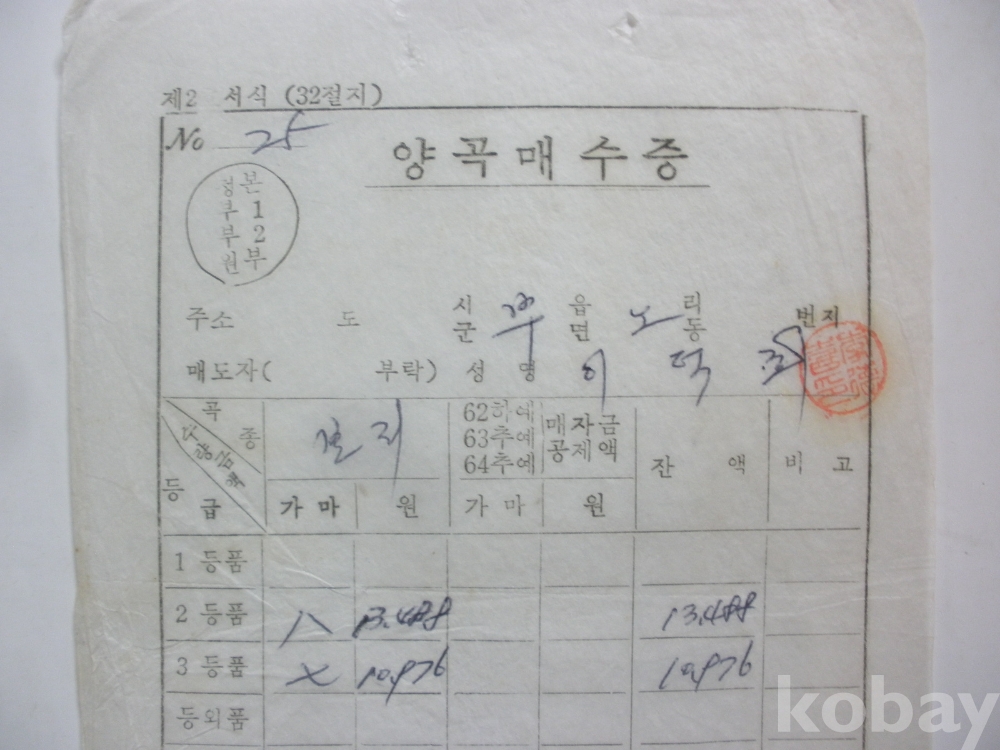 제2 서식 (32절지)
No 25
양곡매수증
본
부 1
부 2
원부
주소 도 시 군 읍 면 노 리 동 번지
매도자( 부락) 성명 이
곡종
수량금액
등급
62하예
63추예
64추예
매자금
공제액
잔액
비고
가마 원 가마 원
1 등품
2 등품 八 13.488 13.488
3 등품 七 10,976 10,976
등외품
kobay